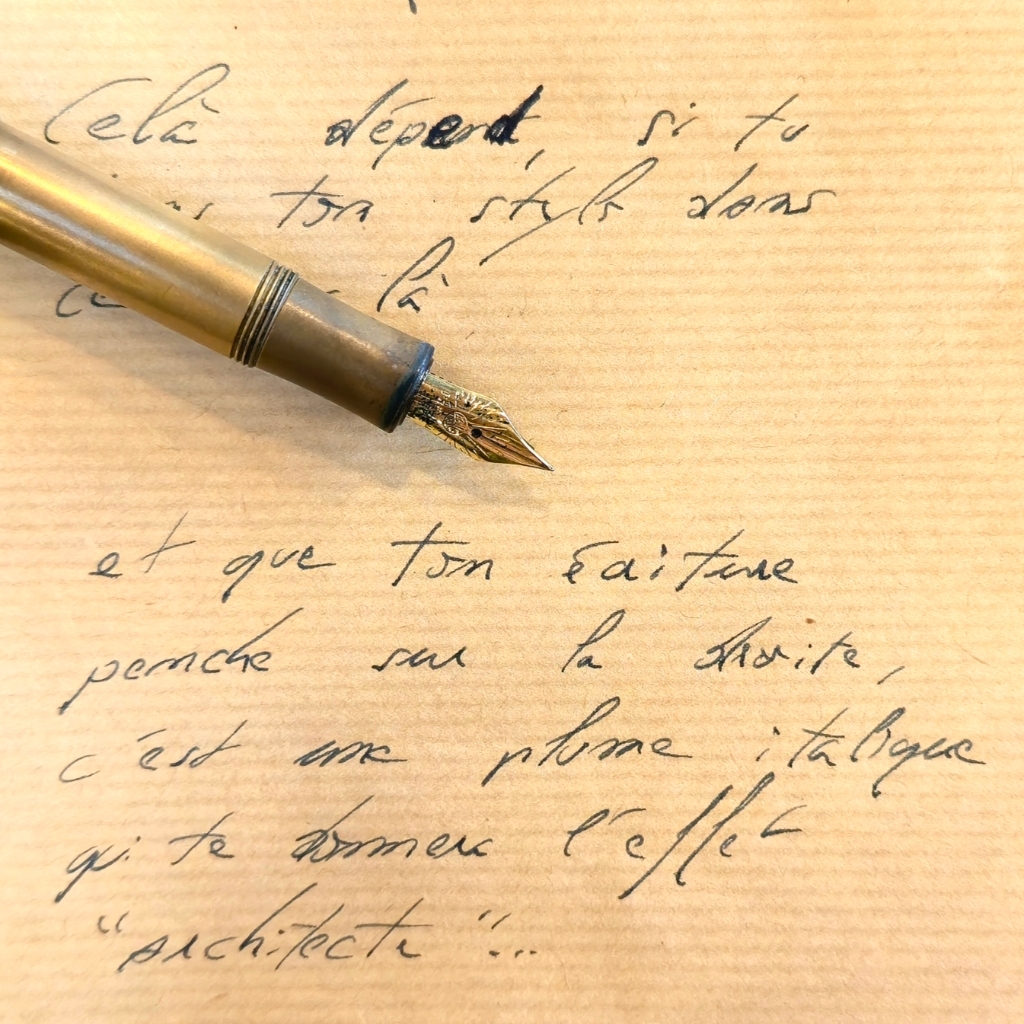 Celà dépend, si tu
ton style dans
là
et que ton écriture
penche sur la droite,
c'est une plume italique
qui te donnera l'effet
"architecte"...